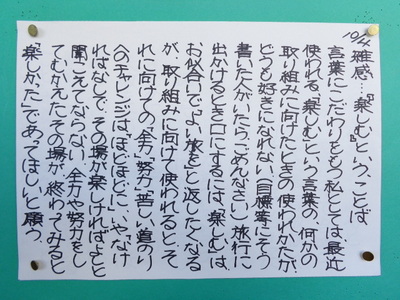 10/4
雑感…『楽しむ』という、ことば
言葉にこだわりをもつ私としては、最近
使われる、「楽しむ」という言葉の、何かの
取り組みに向けたときの使われかたが、
どうも好きになれない。(目標等にそう
書いた人がいたら、ごめんなさい) 旅行に
出かけるとき口にするには、「楽しむ」は、
お似合いで「よい旅を」と返したくなる
が、取り組みに向けて使われると、そ
れに向けての「全力」「努力」「苦しい道のり
へのチャレンジ」は、「ほどほどに…」や、「なけ
ればなしで、その場が楽しければ…」と
聞こえてならない。全力や努力をし
てむかえたその場が、終わってみると
「楽しかった」であってほしいと願う。